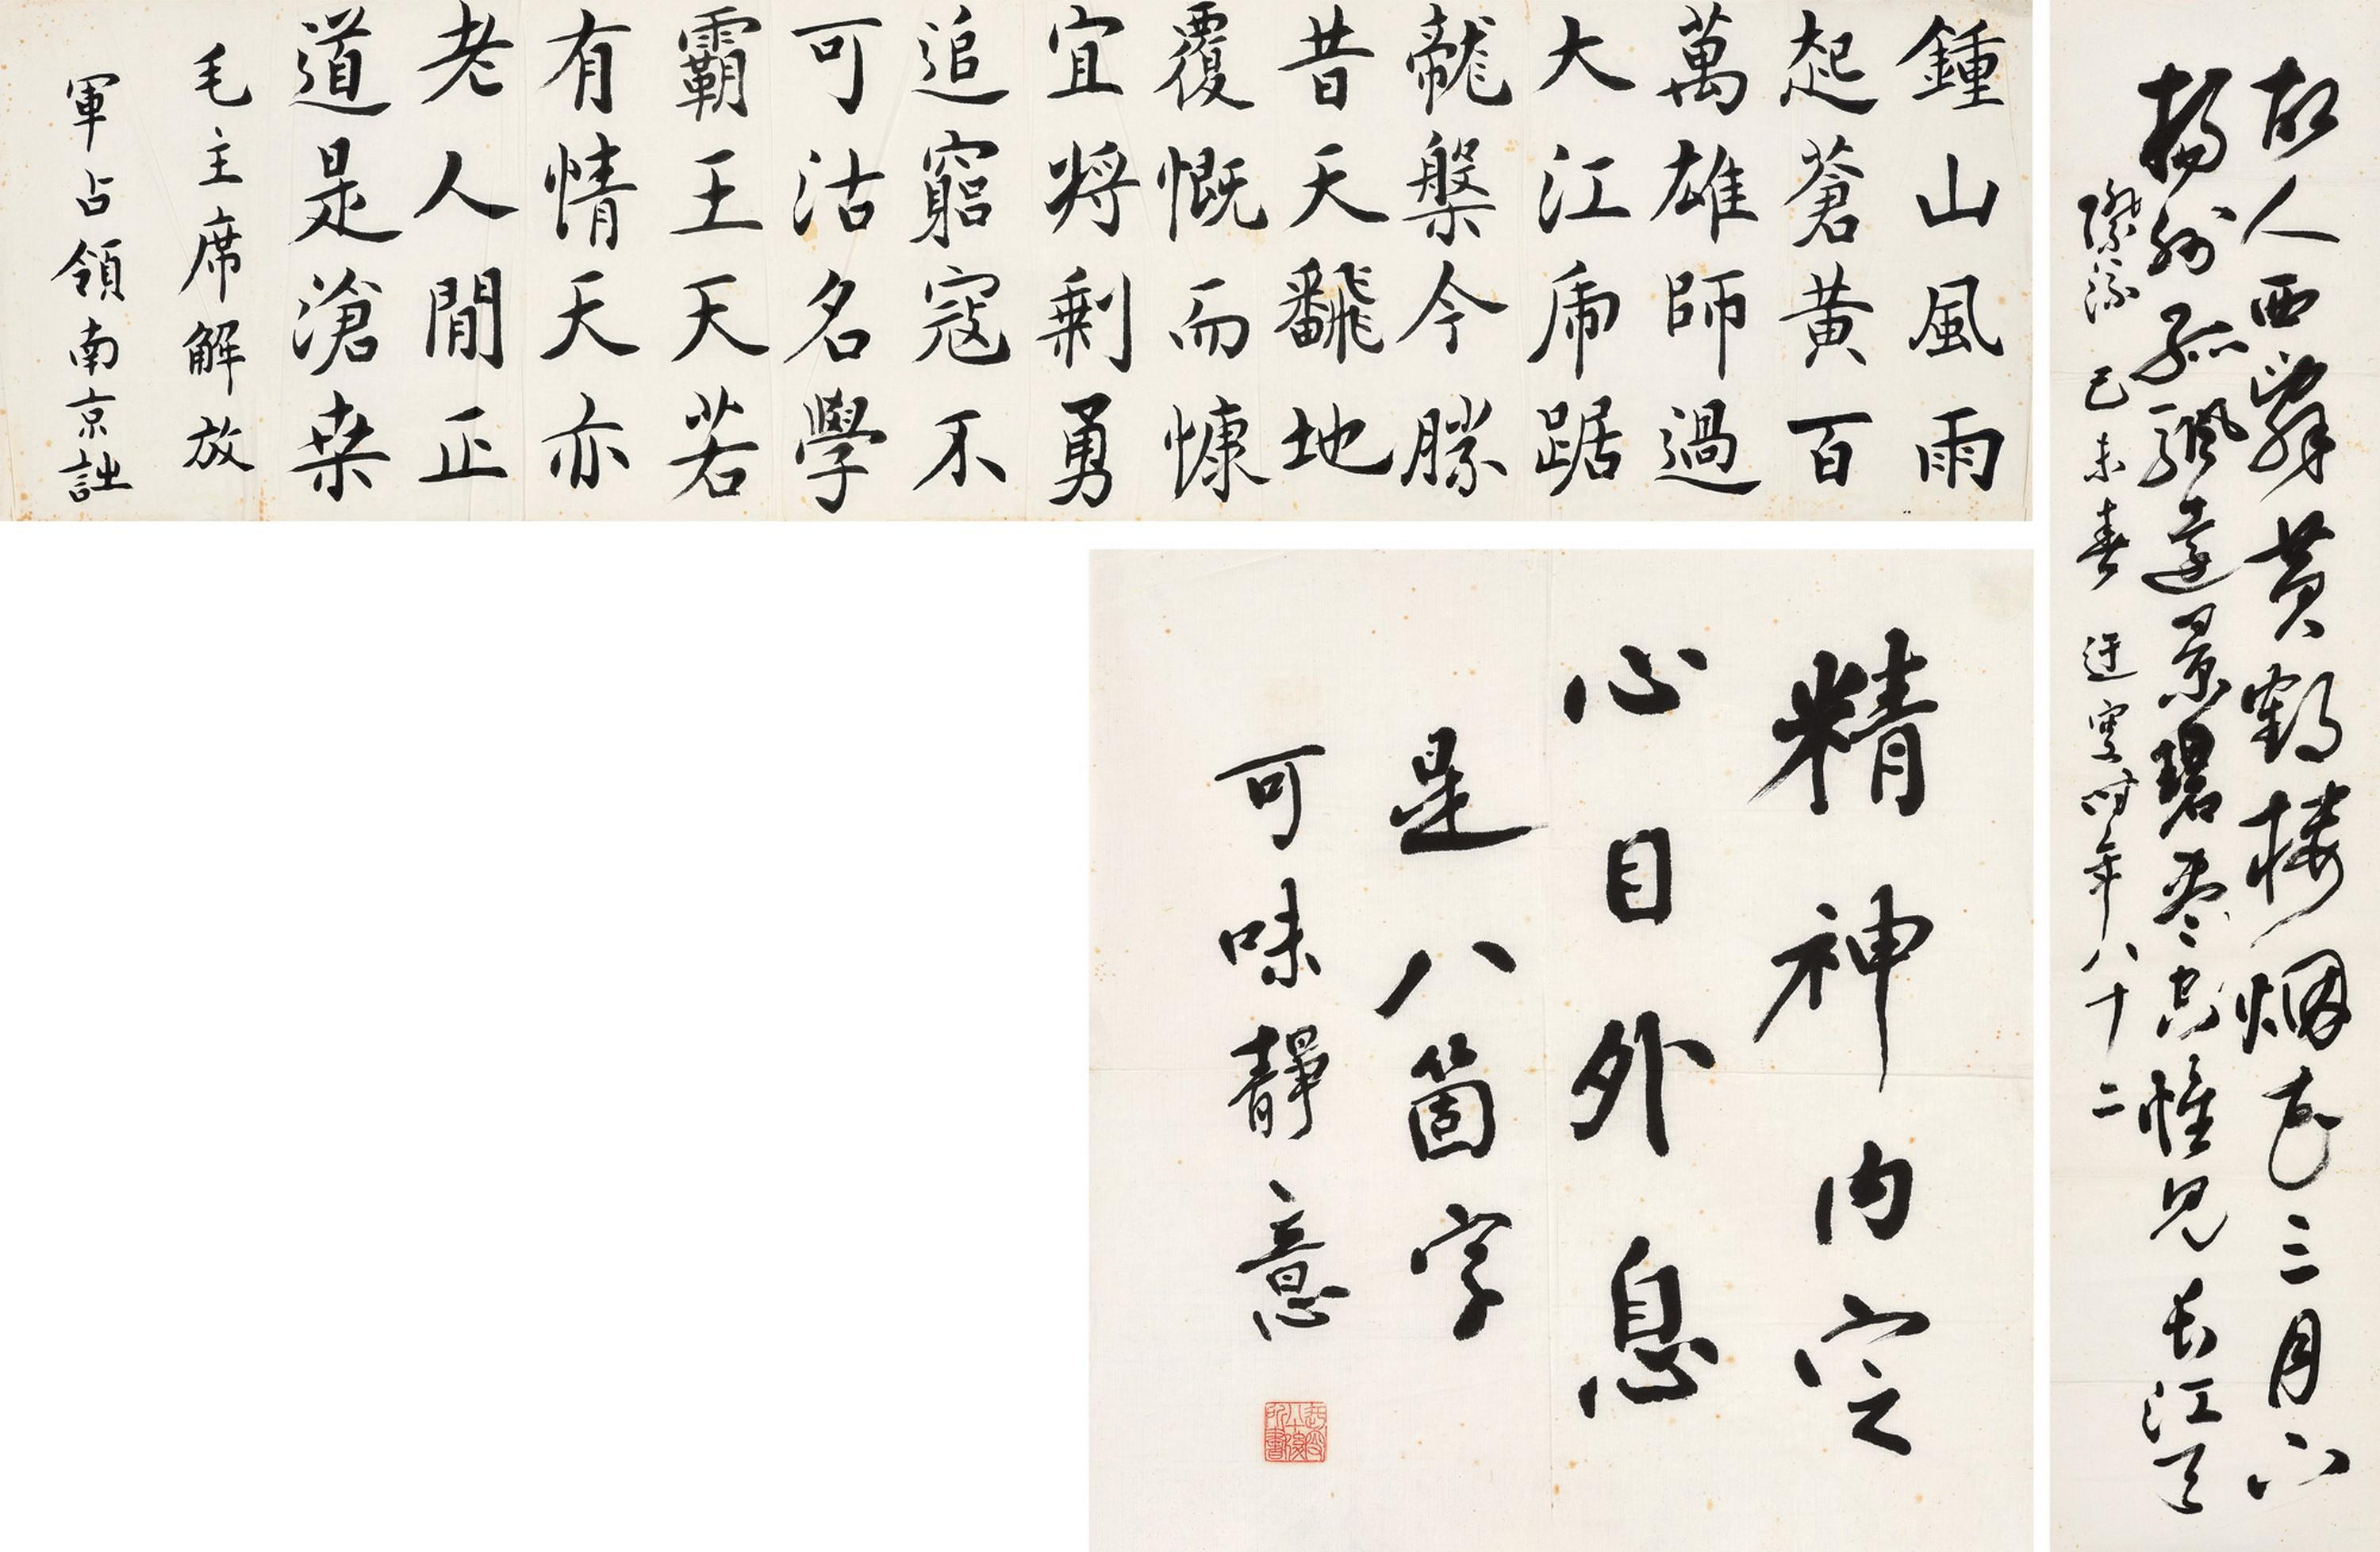 故人西辭黃鶴樓烟花三月下
揚州孤颿遠景碧尽空惟見长江天
際流 己未春 迂叟时年八十二
鍾山風雨
起蒼黃百
萬雄師過
大江虎踞
龍槃今勝
昔天飜地
覆慨而慷
宜將剩勇
追窮寇不
可沽名學
霸王天若
有情天亦
老人閒正
道是滄桑
毛主席解放
軍占領南京詩
精神內定
心目外息
是八箇字
可味靜意